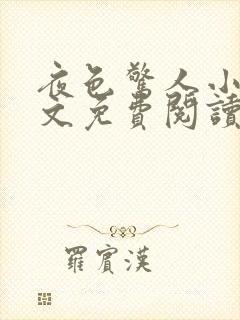 夜色驚人小
文免費閱讀
羅賓漢